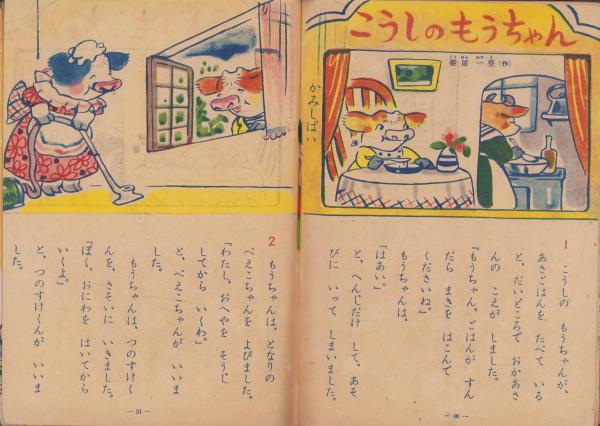 こうしのもうちゃん
栗原一登(作)
かみしばい
1
こうしの もうちゃんが、
あさごはんを たべて いる
と、だいどころで おかあさ
んの こえが しました。
「もうちゃん、ごはんが すん
だら まきを はこんで
くださいね。」
「はあい。」
もうちゃんは、
と、へんじだけ して、あそ
びに いって しまいました。
— 30 —
2
もうちゃんは、となりの
べえこちゃんを よびました。
「わたし、おへやを そうじ
してから いくわ。」
と、べえこちゃんが いいま
した。
もうちゃんは、つのすけく
んを、さそいに いきました。
「ぼく、おにわを はいてから
いくよ。」
と、つのすけくんが いいま
した。
— 31 —